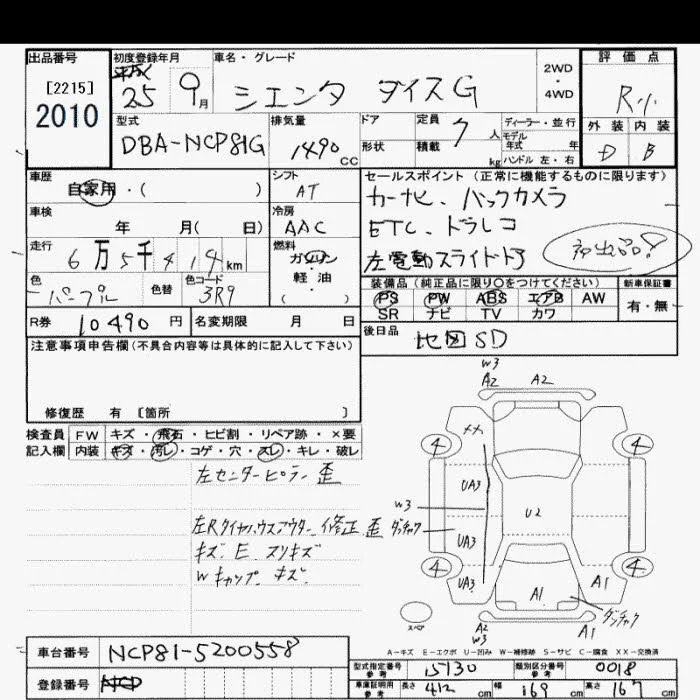 出品番号
[2215]
2010
初度登録年月
平成
25 9月
車名・グレード
シエンタ ダイスG
2WD
・
4WD
評価点
R
外装 内装
D B
型式
DBA-NCP81G
排気量
1490 CC
ドア
形状
定員
7人
積載
kg
ディーラー・並行
モデル
年式 年
ハンドル 左・右
車歴
自家用・( )
シフト
AT
セールスポイント (正常に機能するものに限ります)
カーナビ、バックカメラ
ETC、ドラレコ
左電動スライドドア
初出品!
車検
年 月( 日)
冷房
AAC
走行
6万5千419km
燃料
ガソリン
・
軽・油
( )
色
パープル
色替
色コード
3R9
装備品 (純正品に限り○をつけてください)
PS PW ABS エアB AW
SR ナビ TV カワ
新車保証書
有・無
R券 10490円
名変期限 月 日
後日品 地図SD
注意事項申告欄(不具合内容等は具体的に記入して下さい)
修復歴 有 [箇所 ]
検査員
記入欄
FW キズ・飛石・ヒビ割・リペア跡・×要
内装 キズ・汚レ・コゲ・穴・スレ・キレ・破レ
左センターピラー歪
左Rタイヤハウスアウター修正歪
キズ、E、スリキズ
Wキャップ、キズ、
W3
A2 A2
XX
4 4
UA3
W3
U2
ダンチャク
UA3
4 4
UA3
A1
A1
ダンチャク
A2
W3
A1
スペア
A-キズ E-エクボ U-凹み W-補修跡 S-サビ C-腐食 XX-交換済
車台番号 NCP81-5200558
登録番号
型式指定番号
参考
15130
類別区分番号
参考
0018
車庫証明用
参考
長さ 412 cm 幅 169 cm 高さ 167 cm